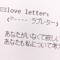 □love letter;
(°---- ラブレター)
あなたがいなくて寂しい
あなたも私について考え